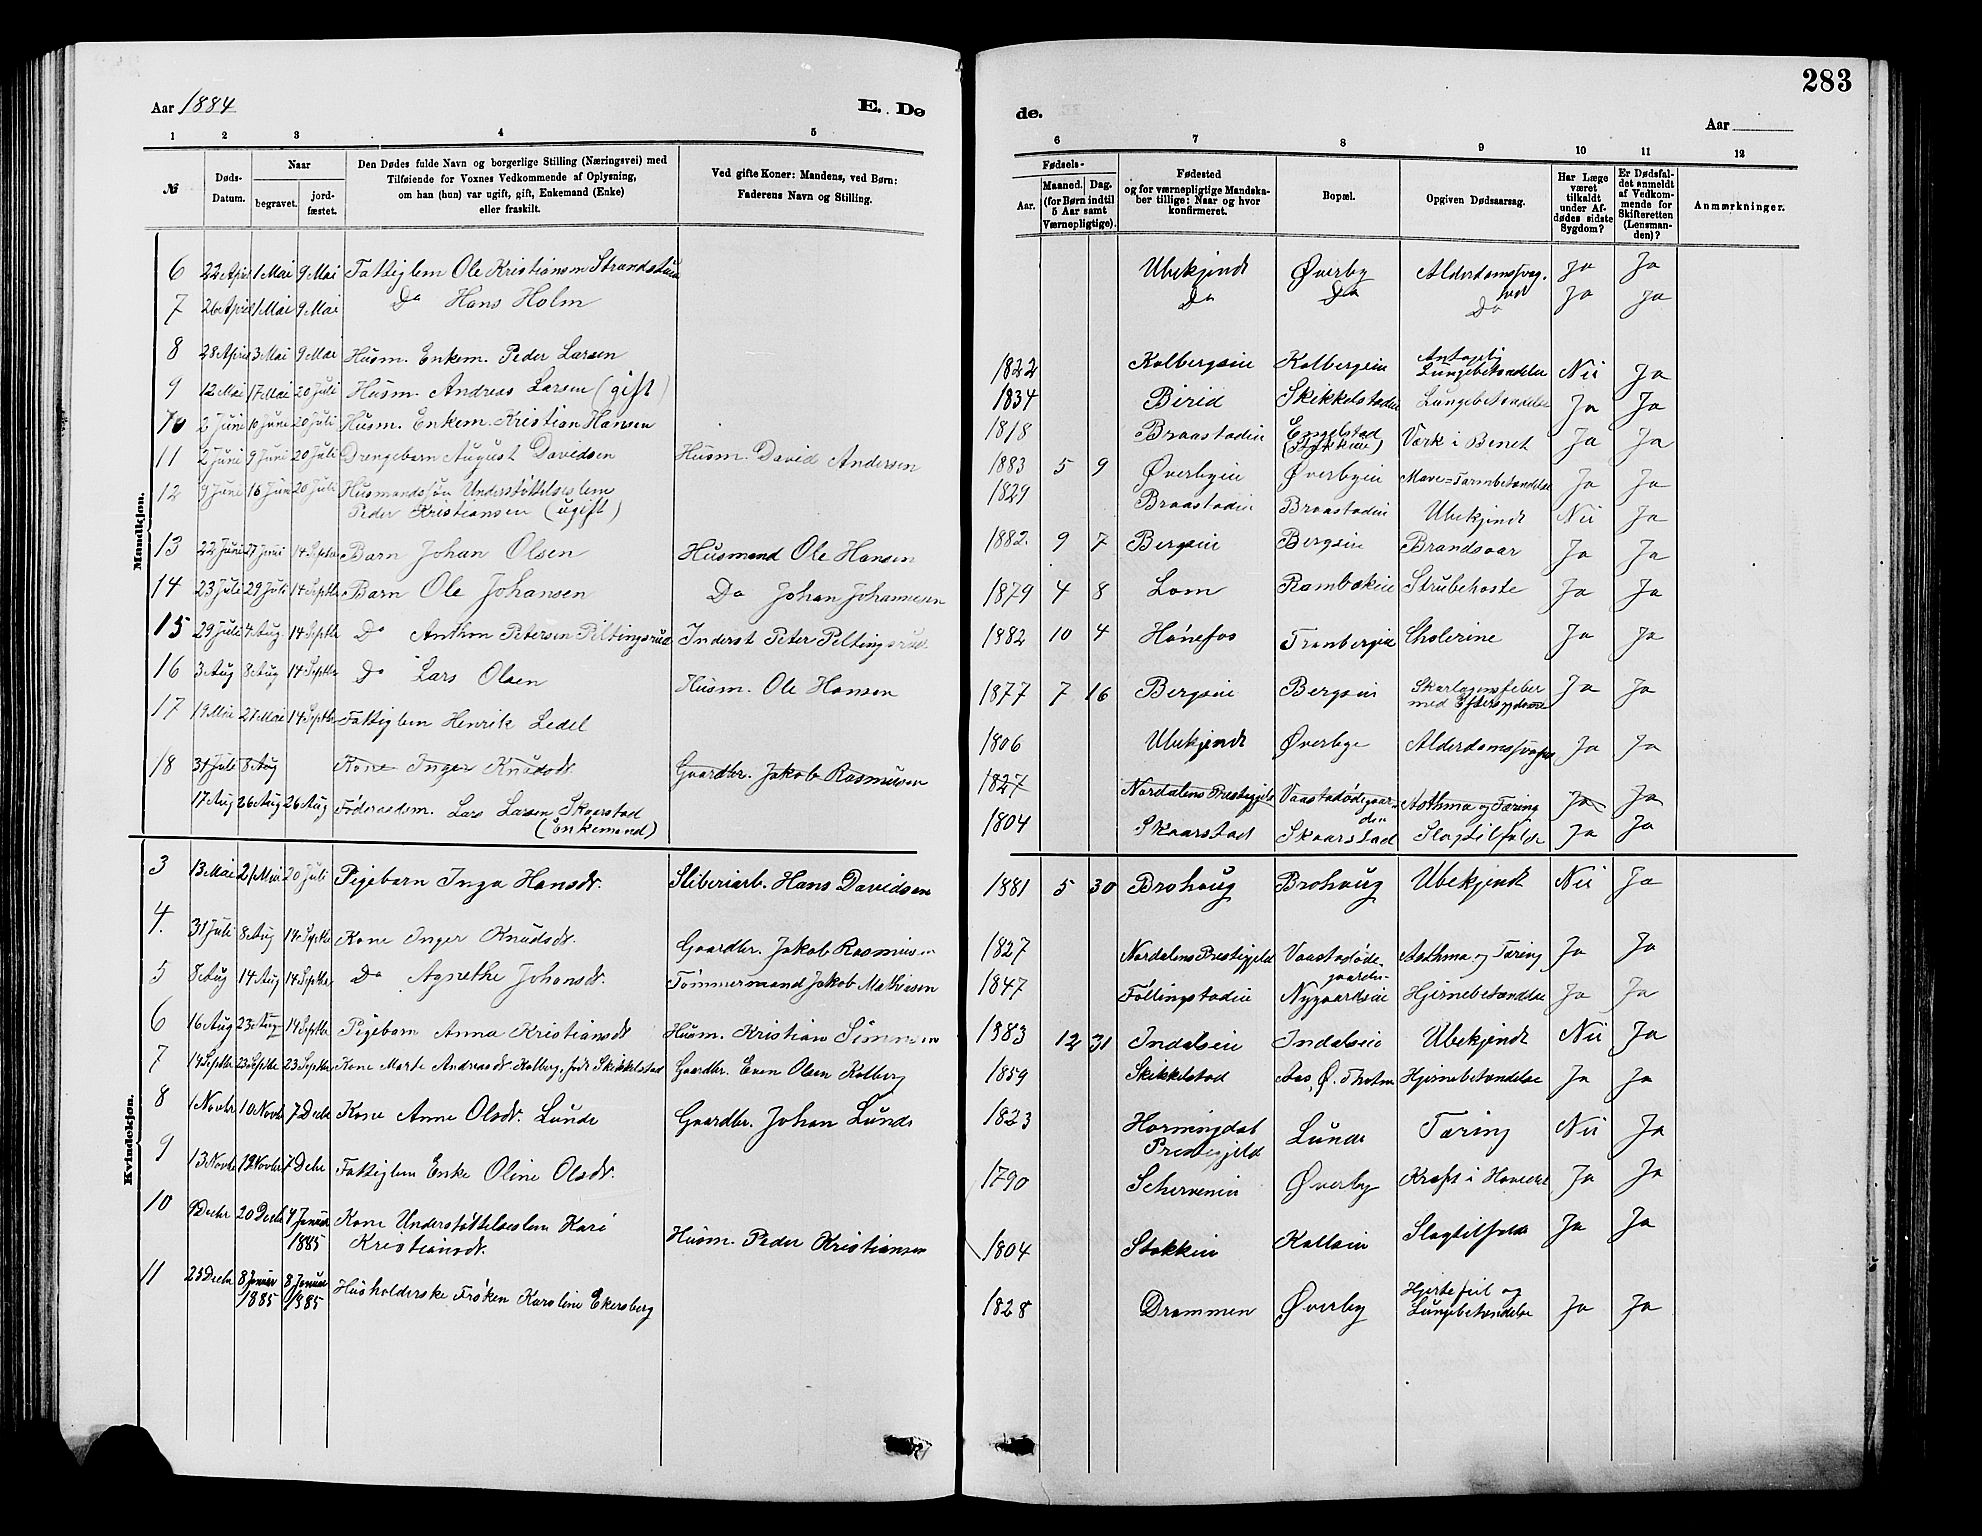 283
Aar 1884
E. Dø
de.
Aar
1 2 3 4 5 6 7 8 9 10 11 12
№
Døds-Datum.
Naar
begravet.
jord-fæstet.
Den Dødes fulde Navn og borgerlige Stilling (Næringsvei) med
Tilføiende for Voxnes Vedkommende af Oplysning,
om han (hun) var ugift, gift, Enkemand (Enke)
eller fraskilt.
Ved gifte Koner: Mandens, ved Børn:
Faderens Navn og Stilling.
Fødsels-
Aar.
Maaned. Dag.
(for Børn indtil
5 Aar samt
Værnepligtige).
Fødested
og for værnepligtige Mandska-
ber tillige: Naar og hvor
konfirmeret.
Bopæl.
Opgiven Dødsaarsag.
Har Læge
været
tilkaldt
under Af-
dødes sidste
Sygdom?
Er Dødsfal-
det anmeldt
af Vedkom-
mende for
Skifteretten
(Lensman-
den)?
Anmærkninger.
Mandkjøn.
6 22 April 1 Mai 9 Mai Fattiglem Ole Kristiansen Ubekjendt Øverby Ja Ja
7 26 April 1 Mai 9 Mai Do Hans Holm Do Do Do Ja Ja
8 28 April 3 Mai 9 Mai Husm. Enkem. Peder Larsen 1822 Kolbergseie Kolbergeie Lungebetændelse Nei Ja
9 12 Mai 17 Mai 20 Juli Husm. Andreas Larsen (gift) 1834 Birid Skikkelstadeie Lungebetændelse Ja Ja
10 2 Juni 10 Juni 20 Juli Husm. Enkem. Kristian Hansen 1818 Braastadeie Engelstad Værk i Benet Ja Ja
11 2 Juni 9 Juni 20 Juli Drengebarn August Davidsen Husm. David Andersen 1883 5 9 Øverbyeie Øverbyeie Mave=Tarmbetændelse Ja Ja
12 9 Juni 16 Juni 20 Juli Husmandssøn Understøttelseslem
Peder Kristiansen (ugift) 1829 Braastadeie Braastadeie Ubekjendt Nei Ja
13 22 Juni 27 Juni 14 Septbr Barn Johan Olsen Husmand Ole Hansen 1882. 9 7 Bergseie Bergseie Brandsaar Ja Ja
14 23 Juli 29 Juli 14 Septbr Barn Ole Johansen Do Johan Johannesen 1879 4 8 Lom Rambækeie Strubehoste Ja Ja
15 29 Juli 4 Aug. 14 Septbr Do Anthon Petersen Peltingsrud Inderst Peter Peltingsrud 1882 10 4 Hønefos Tranbergeie Cholerine Ja Ja
16 3 Aug 8 Aug 14 Septbr Do Lars Olsen Husm. Ole Hansen 1877 7 16 Bergseie Bergseie Skarlagensfeber
med Eftersygdomme Ja Ja
17 19 Mai 27 Mai 14 Septbr Fattiglem Henrik Ledel 1806 Ubekjendt Øverbye Ja Ja
18 31 Juli 8 Aug Kone Inger Knudsdr. Gaardbr. Jakob Rasmusen 1827 Nordalens Prestegjeld Vaastadødegaarden Asthma og Tæring Ja Ja
17 Aug 26 Aug 26 Aug Føderaadsm. Lars Larsen Skaarstad
(Enkemand) 1804 Skaarstad Skaarstad Slagtilfælde Ja Ja
Kvindekjøn.
3 13 Mai 21 Mai 20 Juli Pigebarn Inga Hansdr. Sliberiarb. Hans Davidsen 1881 5 30 Brohaug Brohaug Ubekjendt Nei Ja
4. 31 Juli 8 Aug 14 Septbr Kone Inger Knudsdr. Gaardbr. Jakob Rasmusen 1827 Nordalens Prestegjeld Vaastadøde-
gaarden Asthma og Tæring Ja Ja
5 8 Aug 14 Aug 14 Septbr Do Agnethe Johansdr. Tømmermand Jakob Mathiesen 1847 Føllingstadeie Nygaardseie Hjernebetændelse Ja Ja
6 16 Aug 23 Aug 14 Septbr Pigebarn Anna Kristiansdr Husm. Kristian Simensen 1883 12 31 Indalseie Indalseie Ubekjendt Nei Ja
7 14 Septbr 23 Septbr 23 Septbr Kone Marte Andreasdr. Kolberg, født Skikkelstad Gaardbr. Even Olsen Kolberg 1859 Skikkelstad Aas, Ø. Thoten Hjernebetændelse Ja Ja
8 1 Novbr 10 Novbr 7 Decbr Kone Anne Olsdr. Lunde Gaardbr. Johan Lunde 1823 Horningdal
Prestegjeld Lunde Tæring Nei Ja
9 13 Novbr 19 Novbr 7 Decbr Fattiglem Enke Oline Olsdr. 1790 Øverby Kræft i Hovedet Ja Ja
10 9 Decbr 20 Decbr 4 Januar
1885 Kone Understøttelseslem Kari
Kristiansdr. Husm. Peder Kristiansen 1804 Stokkeie Slagtilfælde Ja Ja
11 25 Decbr 8 Januar
1885 8 Januar
1885 Husholderske Frøken Karoline Ekersberg 1828 Drammen Øverby Hjertefeil og
Lungebetændelse Ja Ja